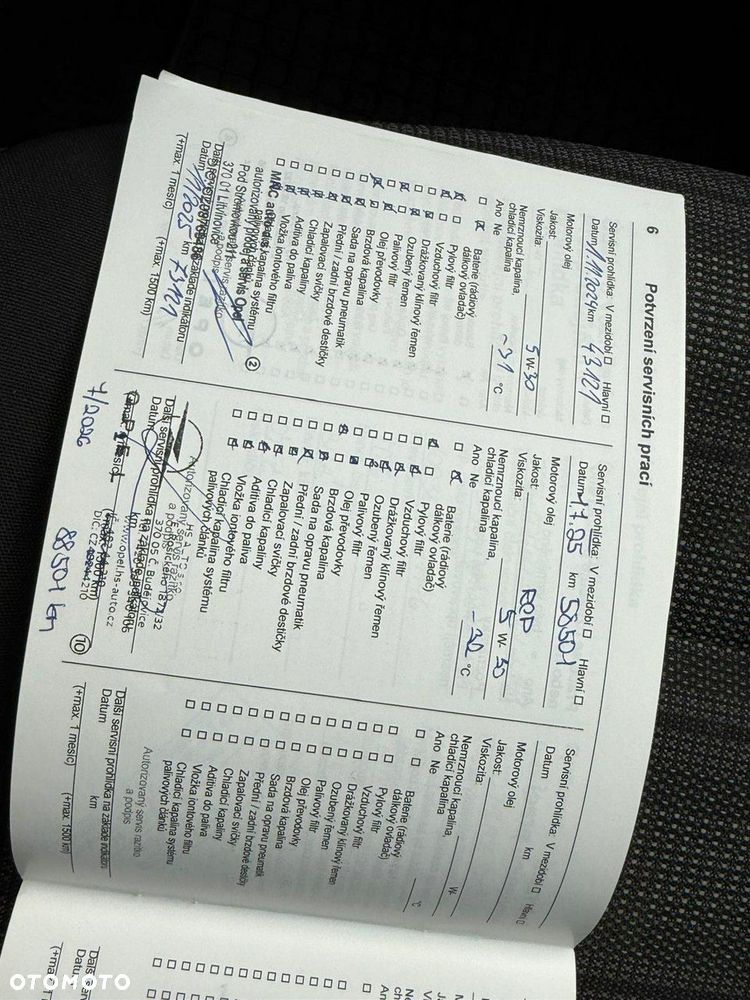 6
Potvrzení servisních prací
Servisní prohlídka: V mezidobí Hlavní
Datum 1.11.2024 km 43121
Motorový olej
Jakost:
Viskozita: 5 W- 30
Nemrznoucí kapalina,
chladicí kapalina -31 °C
Ano Ne
Baterie (rádiový
dálkový ovladač)
Pylový filtr
Vzduchový filtr
Drážkovaný klínový řemen
Ozubený řemen
Palivový filtr
Olej převodovky
Brzdová kapalina
Sada na opravu pneumatik
Přední / zadní brzdové destičky
Zapalovací svíčky
Chladicí kapaliny
Aditiva do paliva
Vložka iontového filtru
autorizovaný prodej a servis Opel
370 01 Litvínovice
2
(+max. 1 měsíc) (+max. 1500 km)
Servisní prohlídka: V mezidobí Hlavní
Datum 1.7.25 km 58501
Motorový olej
Jakost:
Viskozita: 5 W- 30
Nemrznoucí kapalina,
chladicí kapalina -32 °C
Ano Ne
Baterie (rádiový
dálkový ovladač)
Pylový filtr
Vzduchový filtr
Drážkovaný klínový řemen
Ozubený řemen
Palivový filtr
Olej převodovky
Brzdová kapalina
Sada na opravu pneumatik
Přední / zadní brzdové destičky
Zapalovací svíčky
Chladicí kapaliny
Aditiva do paliva
Vložka iontového filtru
Chladicí kapalina systému
palivových článků
370 05 Č. Budějovice
www.opel.hs-auto.cz
7/2026 88501 km
10
Servisní prohlídka: V mezidobí Hlavní
Datum km
Motorový olej
Jakost:
Viskozita: W-
Nemrznoucí kapalina,
chladicí kapalina °C
Ano Ne
Baterie (rádiový
dálkový ovladač)
Pylový filtr
Vzduchový filtr
Drážkovaný klínový řemen
Ozubený řemen
Palivový filtr
Olej převodovky
Brzdová kapalina
Sada na opravu pneumatik
Přední / zadní brzdové destičky
Zapalovací svíčky
Chladicí kapaliny
Aditiva do paliva
Vložka iontového filtru
Chladicí kapalina systému
palivových článků
Autorizovaný servis razítko
a podpis
Další servisní prohlídka na základě indikátoru
Datum km
(+max. 1 měsíc) (+max. 1500 km)
OTOMOTO